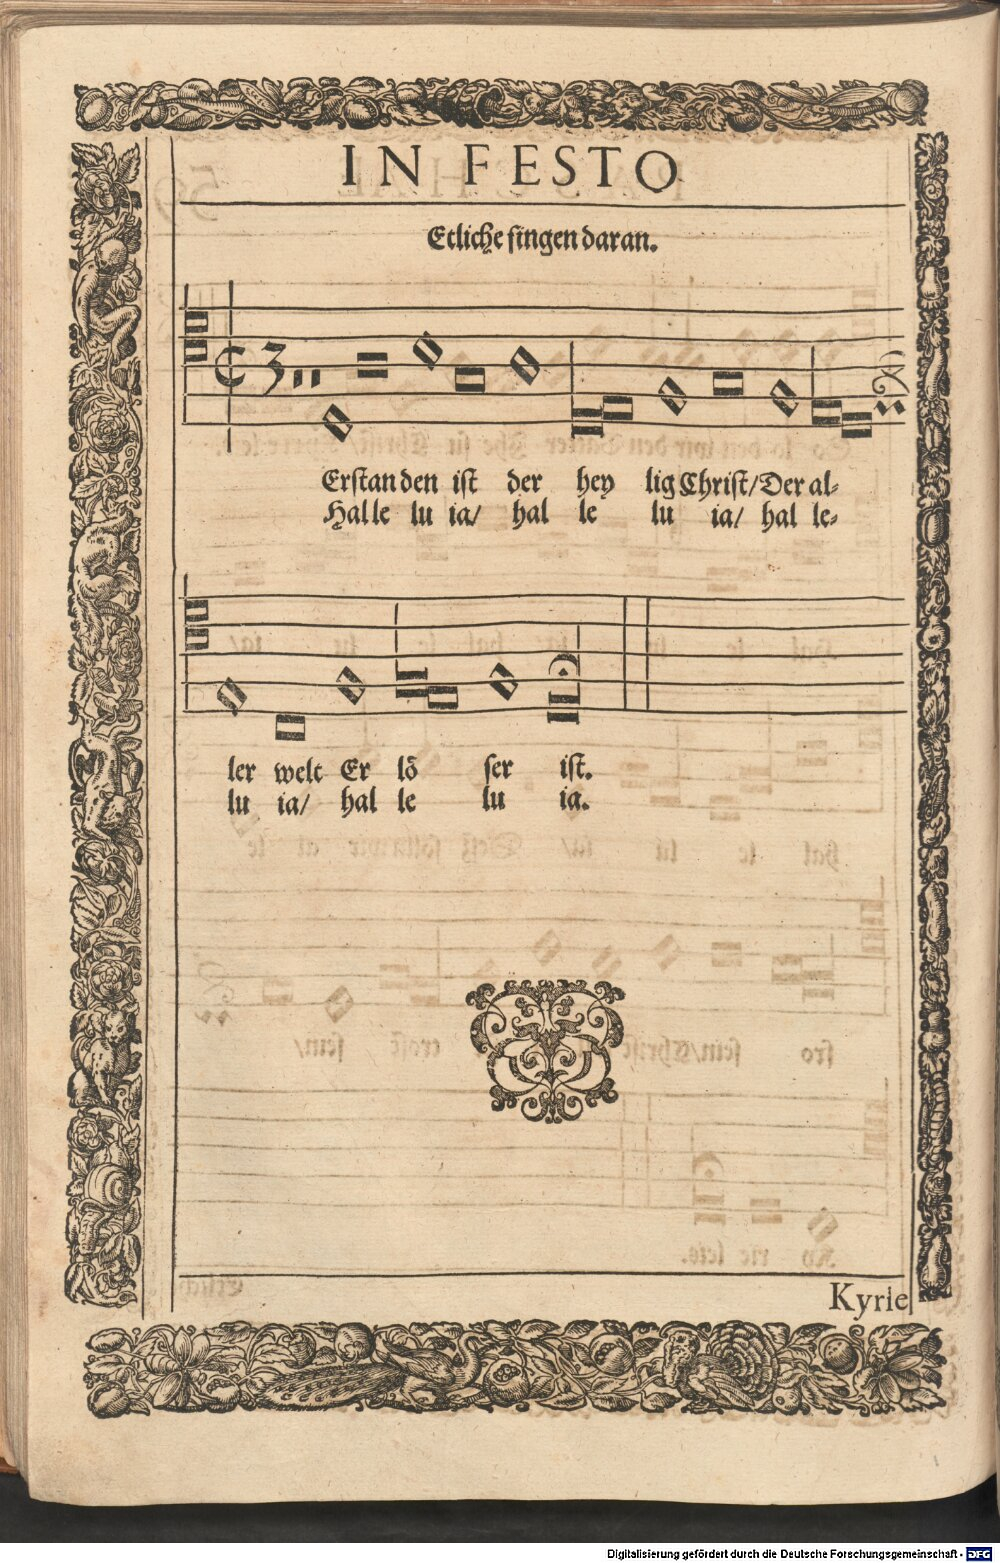 IN FESTO
Etliche singen daran.
Erstan den ist der hey lig Christ/Der al-
Hal le lu ia/ hal le lu ia/ hal le-
ler welt Er lö ser ist.
lu ia/ hal le lu ia.
Kyrie
Digitalisierung gefördert durch die Deutsche Forschungsgemeinschaft - DFG